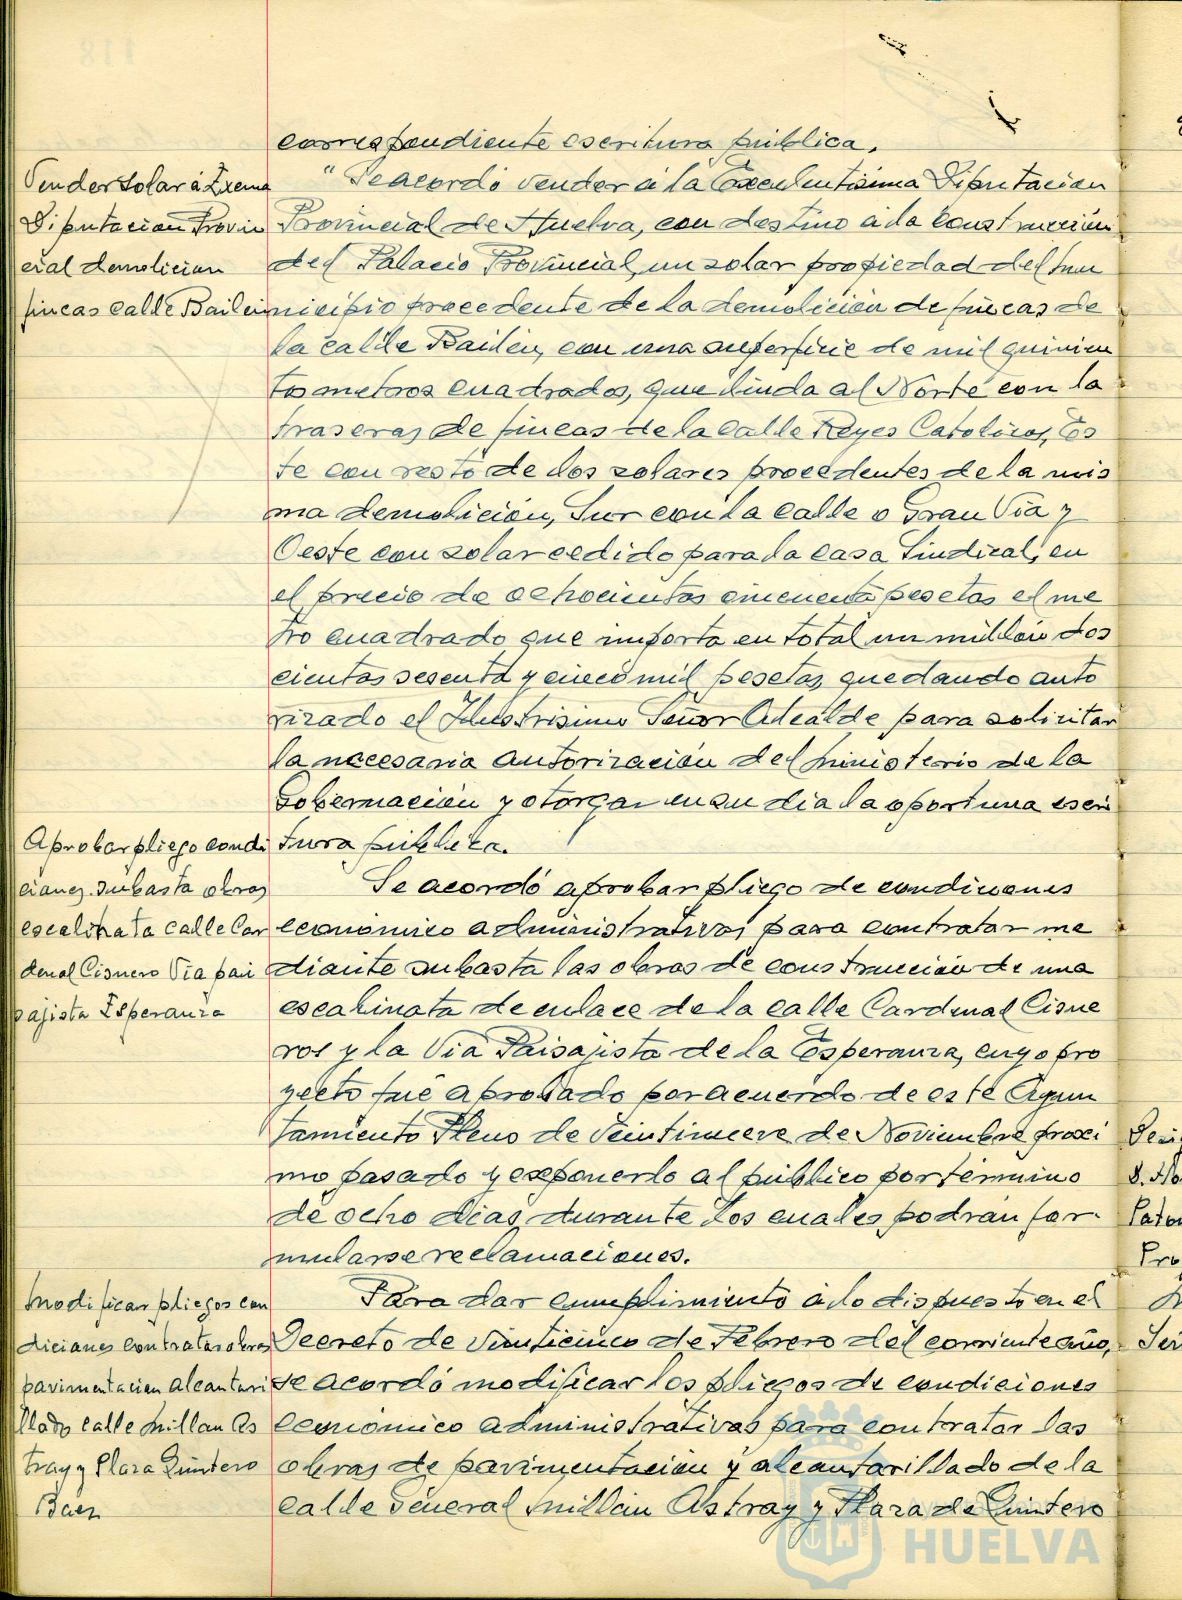 correspondiente escritura pública.
Vender solar á Exema
Diputacion Provin
cial demolicion
fincas calle Bailén
" Se acordó vender á la Excelentísima Diputación
Provincial de Huelva, con destino á la construcción
del Palacio Provincial, un solar propiedad del Mu
nicipio procedente de la demolición de fincas de
la calle Bailén, con una superficie de mil quinien
tos metros cuadrados, que linda al Norte con la
traseras de fincas de la calle Reyes Catolicos, Es
te con resto de los solares procedentes de la mis
ma demolición, Sur con la calle o Gran Vía y
Oeste con solar cedido para la casa Sindical, en
el precio de ochocientas cincuenta pesetas el me
tro cuadrado que importa en total un millón dos
cientas sesenta y cinco mil pesetas, quedando auto
rizado el Ilustrisimo Señor Alcalde para solicitar
la necesaria autorización del Ministerio de la
Gobernación y otorgar en su dia la oportuna escri
tura pública.
Aprobar pliego condi
ciones subasta obras
escalinata calle Car
denal Cisnero Via pai
sajista Esperanza
Se acordó aprobar pliego de condiciones
económico administrativas para contratar me
diante subasta las obras de construcción de una
escalinata de enlace de la calle Cardenal Cisne
ros y la Via Paisajista de la Esperanza, cuyo pro
yecto fué aprobado por acuerdo de este Ayun
tamiento Pleno de veintinueve de Noviembre proxi
mo pasado y exponerlo al público por término
de ocho dias, durante los cuales podrán for-
mularse reclamaciones.
Modificar pliegos con
diciones contratar obras
pavimentacion alcantari
llado calle Millan As
tray y Plaza Quintero
Baez
Para dar cumplimiento á lo dispuesto en el
Decreto de veinticinco de Febrero del corriente año,
se acordó modificar los pliegos de condiciones
económico administrativas para contratar las
obras de pavimentación y alcantarillado de la
calle General Millán Astray y Plaza de Quintero
HUELVA